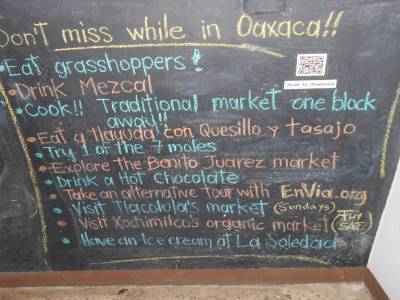 Don't miss while in Oaxaca!!
•Eat grasshoppers!
•Drink Mezcal
•Cook!! Traditional market one block
away!!
•Eat a tlayuda con Quesillo y tasajo
•Try 1 of the 7 moles
•Explore the Benito Juarez market
•Drink a Hot Chocolate
•Take an alternative tour with EnVia.org
•Visit Tlacolula's market (Sundays)
•Visit Xochimilco's organic market (FRI
SAT)
•Have an Ice cream at La Soledad